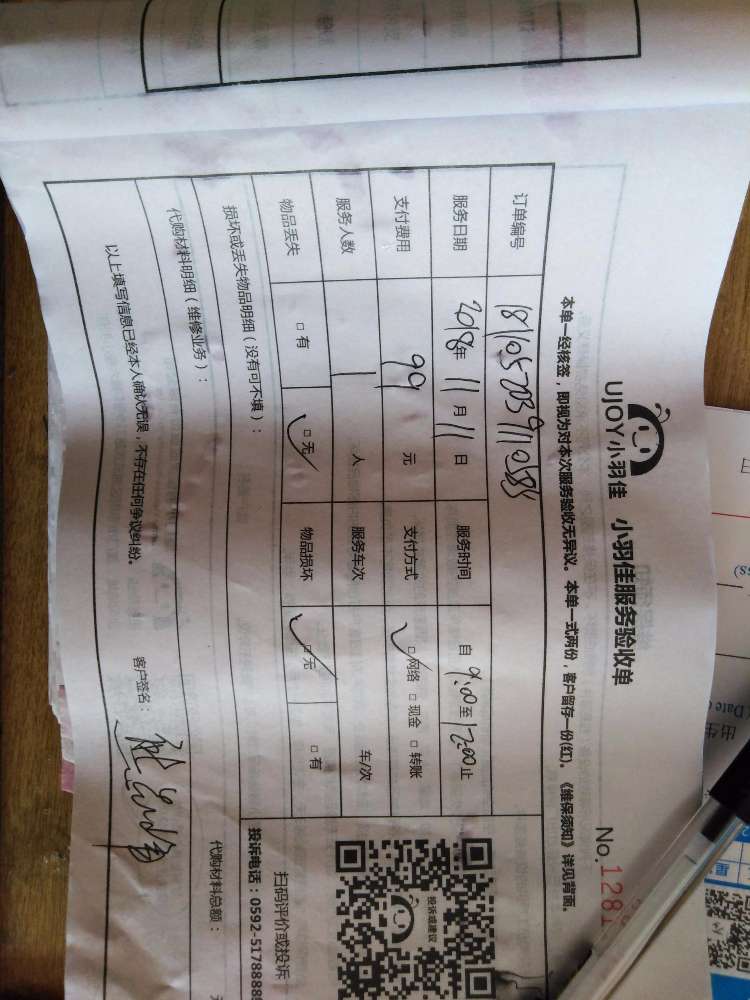 UJOY小羽佳 小羽佳服务验收单
No.1281
本单一经核签，即视为对本次服务验收无异议。本单一式两份，客户留存一份(红)。《维保须知》详见背面。
订单编号
服务日期 2018年 11月 11日 服务时间 自 9:00至12:00止
支付费用 99 元 支付方式 □网络 □现金 □转账
服务人数 1 人 服务车次 车/次
物品丢失 □有 □无 物品损坏 □无 □有
损坏或丢失物品明细（没有可不填）：
代购材料明细（维修业务）： 代购材料总额：
以上填写信息已经本人确认无误，不存在任何争议纠纷。 客户签名：
投诉或建议
扫码评价或投诉
投诉电话：0592-5178888